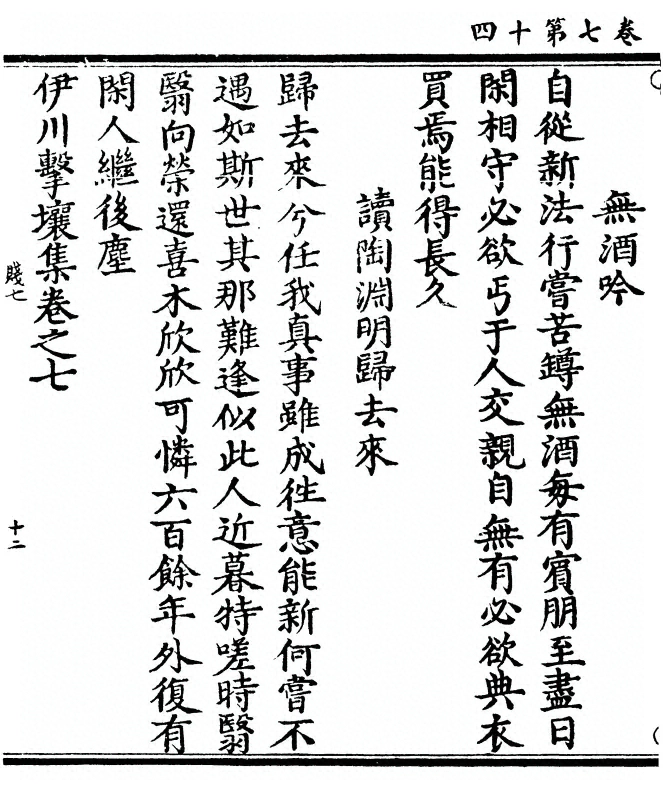 卷七第十四
無酒吟
自從新法行嘗苦罇無酒每有賓朋至盡日
閑相守必欲丐于人交親自無有必欲典衣
買焉能得長久
讀陶淵明歸去來
歸去來兮任我真事雖成徃意能新何嘗不
遇如斯世其那難逢似此人近暮特嗟時翳
翳向榮還喜木欣欣可憐六百餘年外復有
閑人繼後塵
伊川擊壤集卷之七
賤七
十二